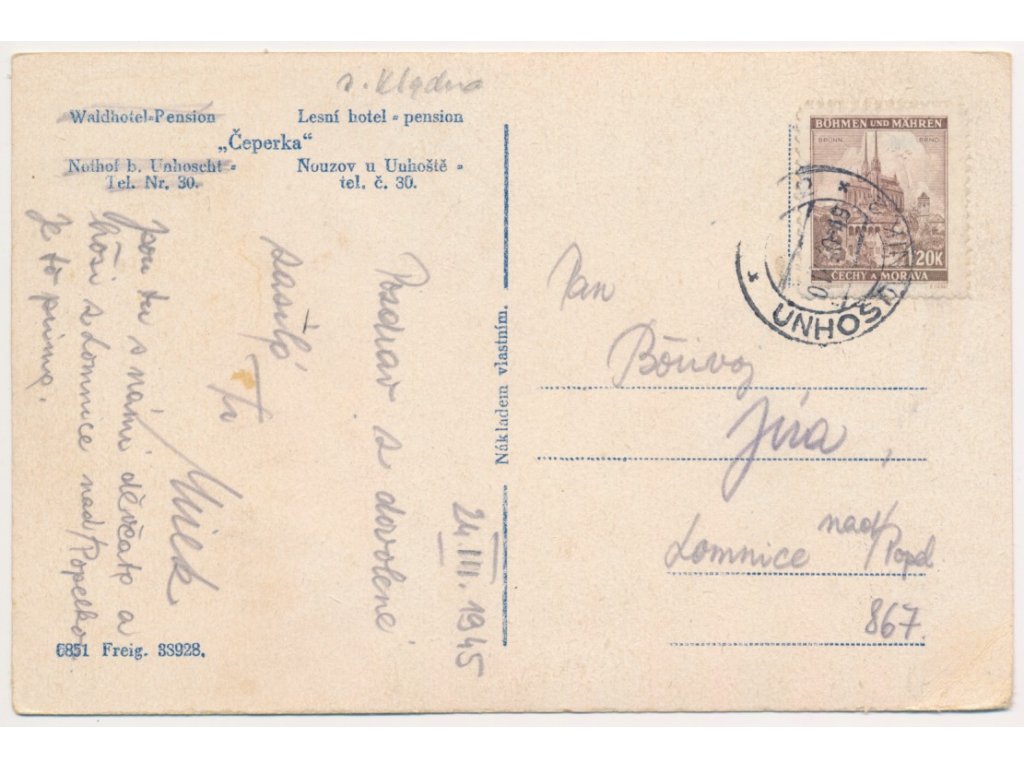 s. Kladna
Waldhotel-Pension
Lesní hotel - pension
„Čeperka“
Nothof b. Unhoscht -
Nouzov u Unhoště -
Tel. Nr. 30.
tel. č. 30.
24. III. 1945
Pozdrav z dovolené
zasílá
Ti
Milek
jsou tu s námi děvčata a
hoši z Lomnice nad/Popelkou
Je to prima.
6851 Freig. 38928.
Nákladem vlastním.
BÖHMEN UND MÄHREN
BRÜNN
BRNO
1'20K
ČECHY A MORAVA
UNHOŠŤ
Pan
Bořivoj
Jíra,
Lomnice nad/Popel
867.